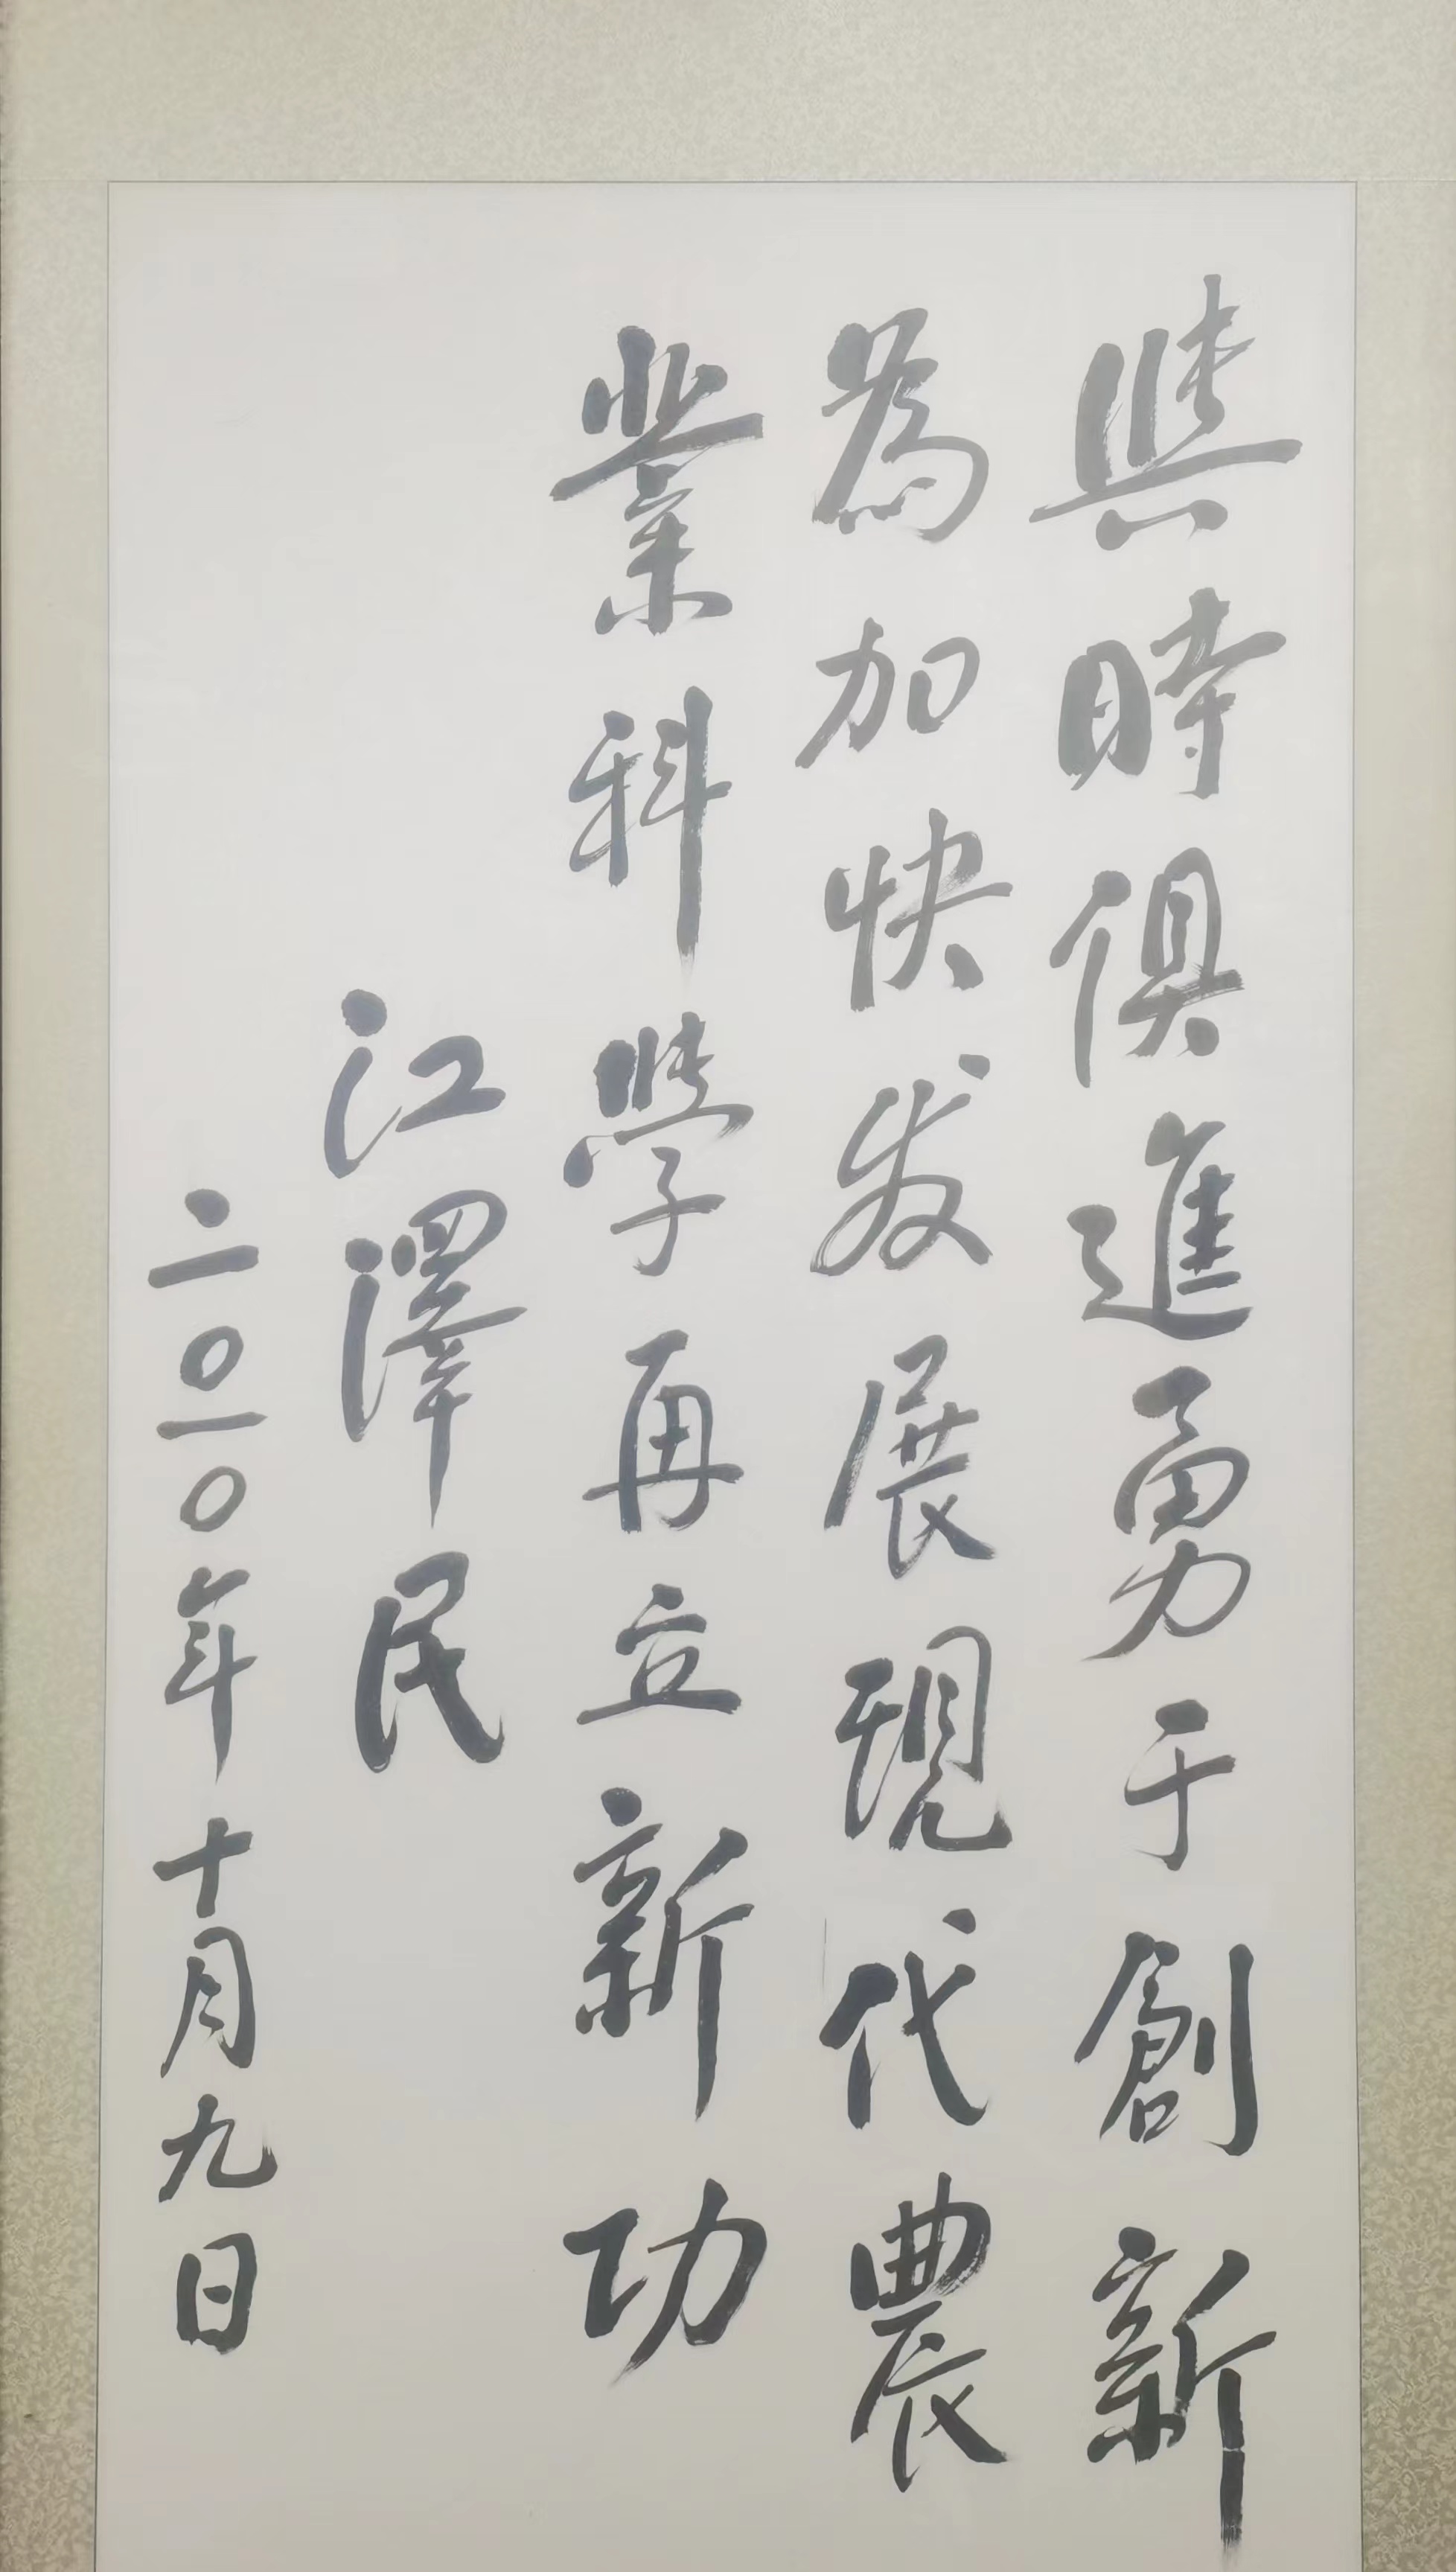 與時俱進勇于創新
為加快发展現代農
業科學再立新功
江澤民
二〇一〇年十月九日